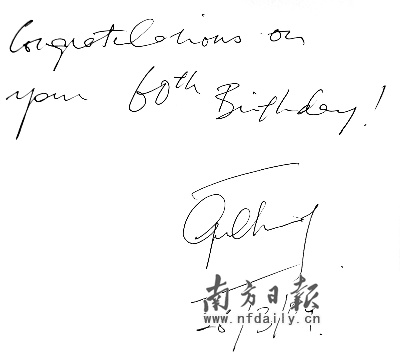 Congratulations on
your 60th Birthday!
南方日报
www.nfdaily.cn